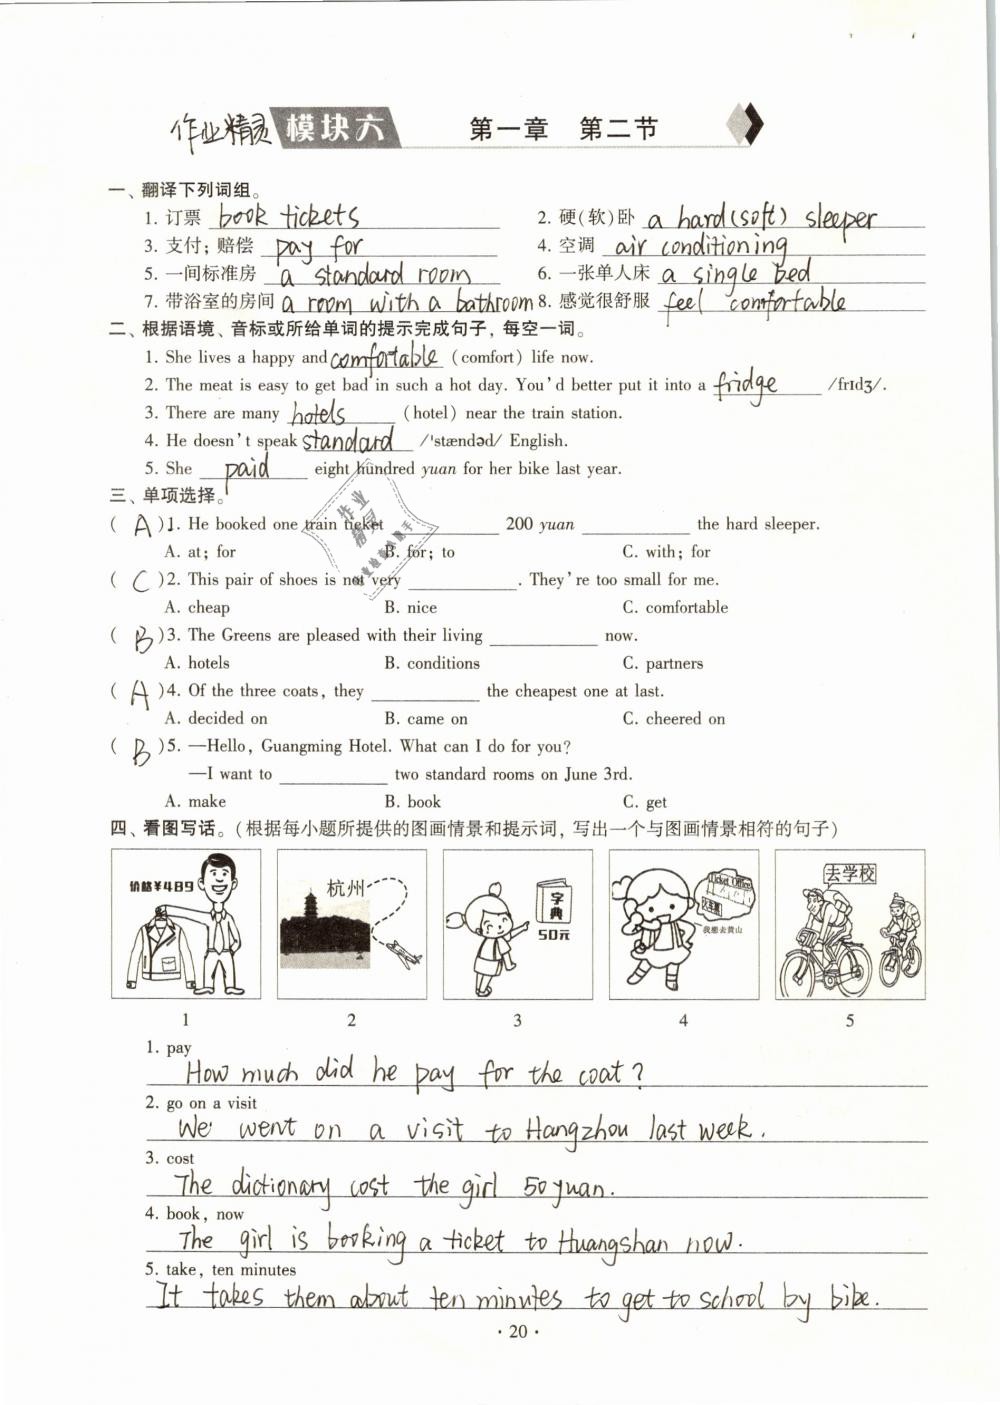 作业精灵 模块六 第一章 第二节
一、翻译下列词组。
1. 订票 book tickets 2. 硬(软)卧 a hard(soft) sleeper
3. 支付；赔偿 pay for 4. 空调 air conditioning
5. 一间标准房 a standard room 6. 一张单人床 a single bed
7. 带浴室的房间 a room with a bathroom 8. 感觉很舒服 feel comfortable
二、根据语境、音标或所给单词的提示完成句子，每空一词。
1. She lives a happy and comfortable (comfort) life now.
2. The meat is easy to get bad in such a hot day. You'd better put it into a fridge /frɪdʒ/.
3. There are many hotels (hotel) near the train station.
4. He doesn't speak standard /ˈstændəd/ English.
5. She paid eight hundred yuan for her bike last year.
三、单项选择。
( A )1. He booked one train ticket ______ 200 yuan ______ the hard sleeper.
A. at; for B. for; to C. with; for
( C )2. This pair of shoes is not very ______. They're too small for me.
A. cheap B. nice C. comfortable
( B )3. The Greens are pleased with their living ______ now.
A. hotels B. conditions C. partners
( A )4. Of the three coats, they ______ the cheapest one at last.
A. decided on B. came on C. cheered on
( B )5. —Hello, Guangming Hotel. What can I do for you?
—I want to ______ two standard rooms on June 3rd.
A. make B. book C. get
四、看图写话。(根据每小题所提供的图画情景和提示词，写出一个与图画情景相符的句子)
价格¥489
杭州
字典
50元
Ticket Office
火车票
我想去黄山
去学校
1 2 3 4 5
1. pay
How much did he pay for the coat?
2. go on a visit
We went on a visit to Hangzhou last week.
3. cost
The dictionary cost the girl 50 yuan.
4. book, now
The girl is booking a ticket to Huangshan now.
5. take, ten minutes
It takes them about ten minutes to get to school by bike.
· 20 ·